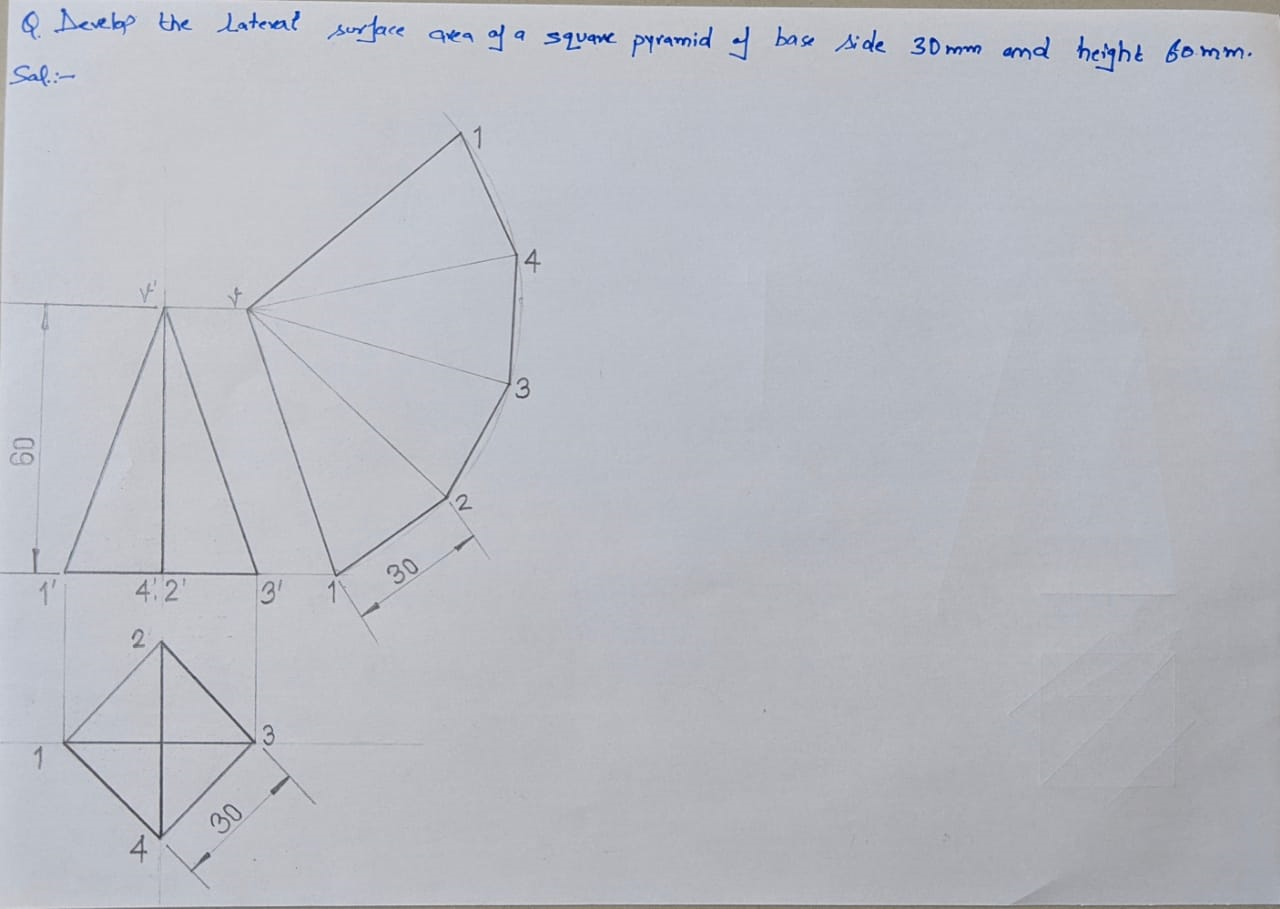 Q. Develop the Lateral surface area of a square pyramid of base side 30mm and height 60mm.
Sol.:-
1
4
V' V
3
60
2
30
1' 4' 2' 3' 1
2
3
1
30
4